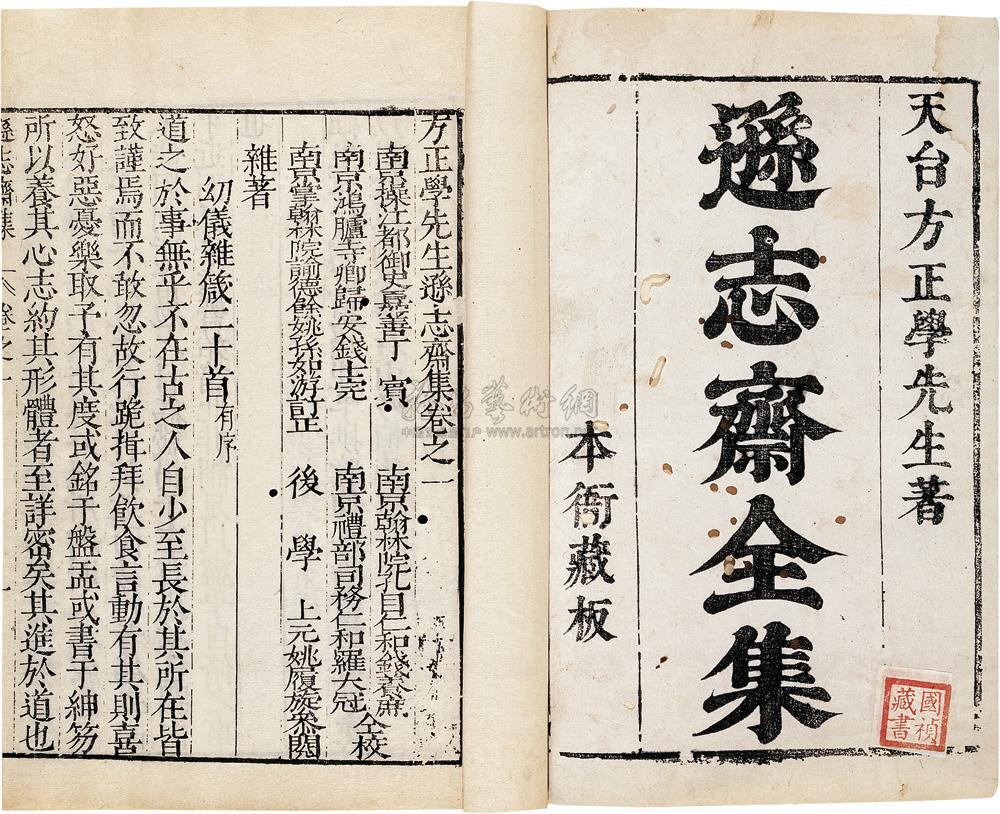 天台方正學先生著
遜志齋全集
本衙藏板
國禎
藏書
方正學先生遜志齋集卷之一
南京操江都御史嘉善丁賓 南京翰林院孔目仁和錢養庶
南京鴻臚寺卿歸安錢士完 南京禮部司務仁和羅大冠 仝校
南京掌翰林院諭德餘姚孫如游訂正 後學 上元姚履旋叅閱
雜著
幼儀雜箴二十首有序
道之於事無乎不在古之人自少至長於其所在皆
致謹焉而不敢忽故行跪揖拜飲食言動有其則喜
怒好惡憂樂取予有其度或銘于盤盂或書于紳笏
所以養其心志約其形體者至詳密矣其進於道也
遜志齋集 卷之一 一
www.artron.net